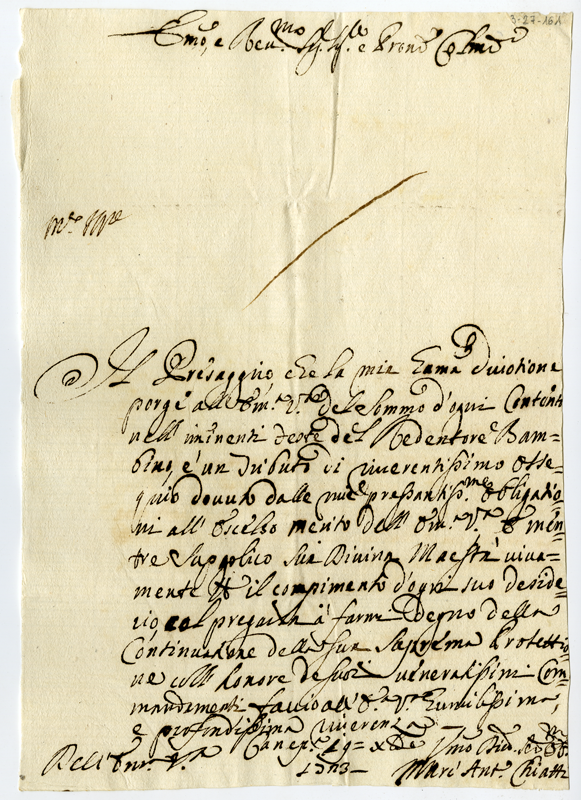 3-27-161
Emo, e Reu.mo Sig. Sig.re e Prone Colmo
Il Presaggio che la mia hum.a diuotione
porge all' Em.a V.ra del sommo d'ogni contento
nell' iminenti feste del Redentore Bam=
bino, è un tributo di riuerentissimo osse=
quio douuto dalle mie pressantis.me obligatio
ni all' eccelso merito dell' Em.a V.ra e men=
tre supplico Sua Diuina Maestà viua=
mente il compimento d'ogni suo deside=
rio, col pregarla à farmi degno della
Continuatione della sua suprema Protettio
ne coll' honore de suoi veneratissimi Com=
mandamenti faccio all' E.a V.ra humilissima,
e profondissima riuerenza
Dell' Em.a V.ra
Mare' Ant. Chiatti